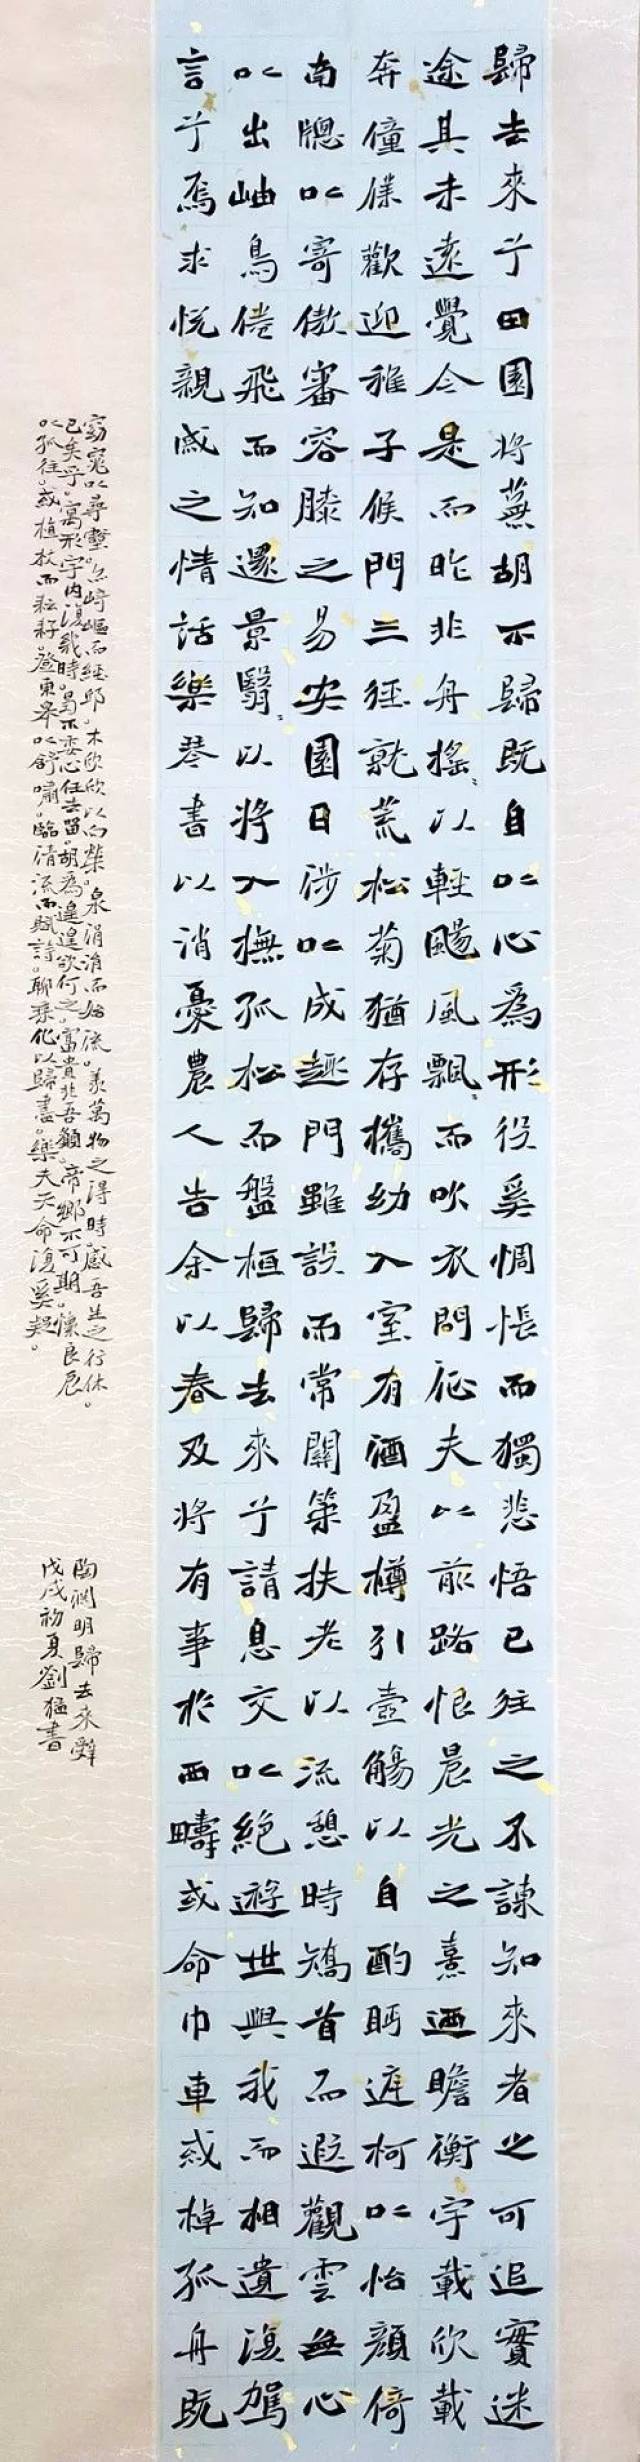 歸去來兮田園將蕪胡不歸既自以心為形役奚惆悵而獨悲悟已往之不諫知來者之可追實迷
途其未遠覺今是而昨非舟搖〻以輕颺風飄〻而吹衣問征夫以前路恨晨光之熹迺瞻衡宇載欣載
奔僮僕歡迎稚子候門三徑就荒松菊猶存攜幼入室有酒盈樽引壺觴以自酌眄庭柯以怡顏倚
南牕以寄傲審容膝之易安園日涉以成趣門雖設而常關策扶老以流憩時矯首而遐觀雲無心
以出岫鳥倦飛而知還景翳〻以將入撫孤松而盤桓歸去來兮請息交以絕遊世與我而相遺復駕
言兮焉求悅親戚之情話樂琴書以消憂農人告余以春及將有事於西疇或命巾車或棹孤舟既
窈窕以尋壑。亦崎嶇而經邱。木欣欣以向榮。泉涓涓而始流。羨萬物之得時感吾生之行休。
已矣乎。寓形宇內復幾時。曷不委心任去留。胡為遑遑欲何之。富貴非吾願。帝鄉不可期。懷良辰
以孤往。或植杖而耘耔。登東皋以舒嘯。臨清流而賦詩。聊乘化以歸盡。樂夫天命復奚疑。
陶淵明歸去來辭
戊戌初夏劉猛書